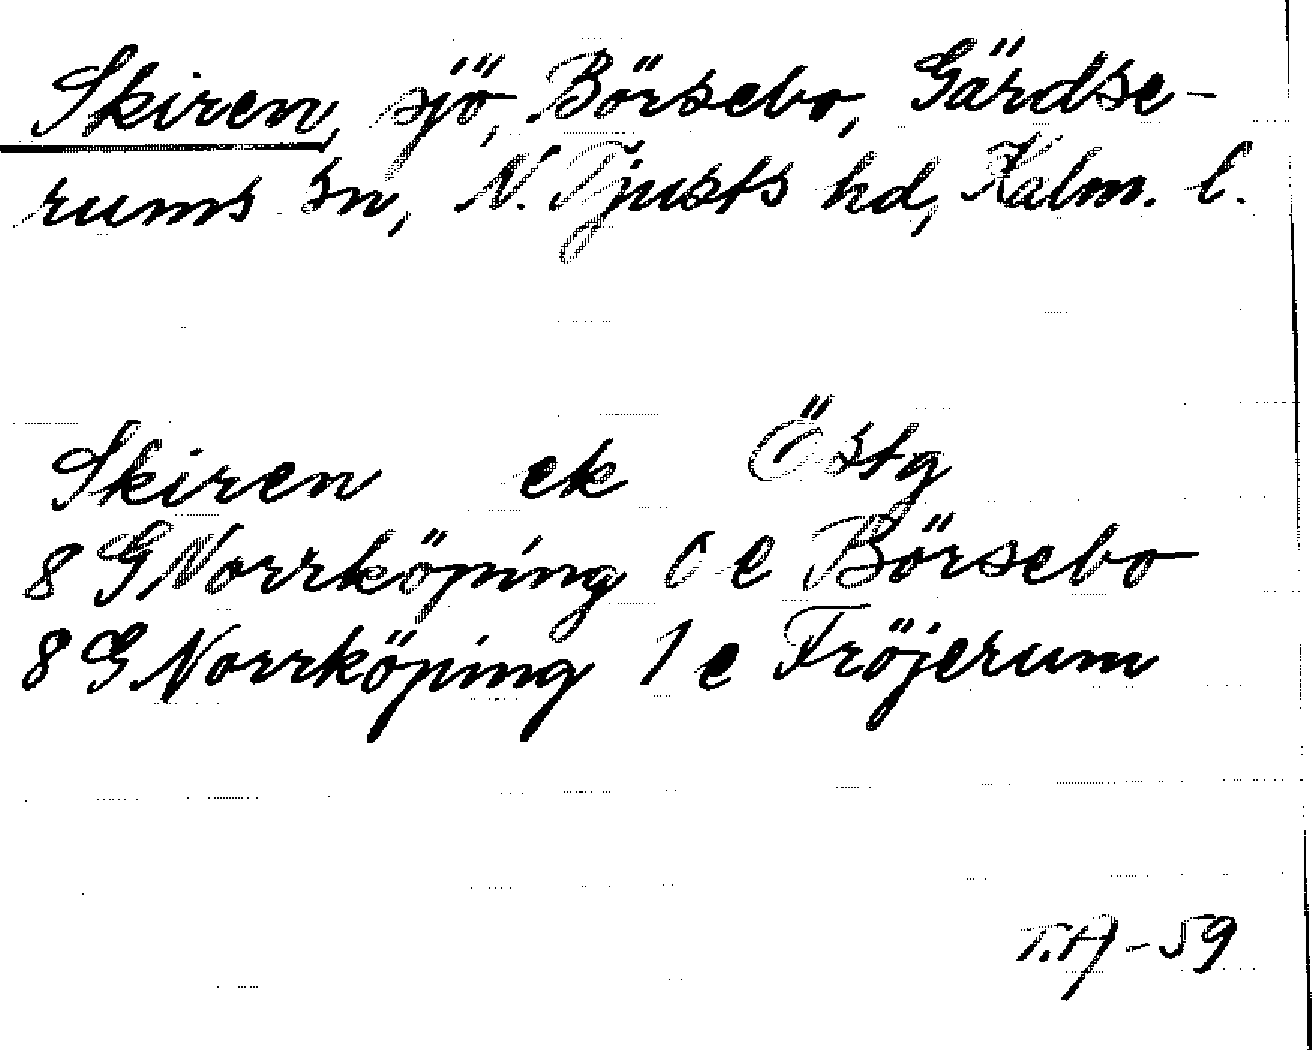 Skiren, sjö, Börsebo, Gärdse-
rums sn, N. Tjusts hd, Kalm. l.
Skiren ek Östg
8 G Norrköping 0 e Börsebo
8 G Norrköping 1 e Fröjerum
T.A-59